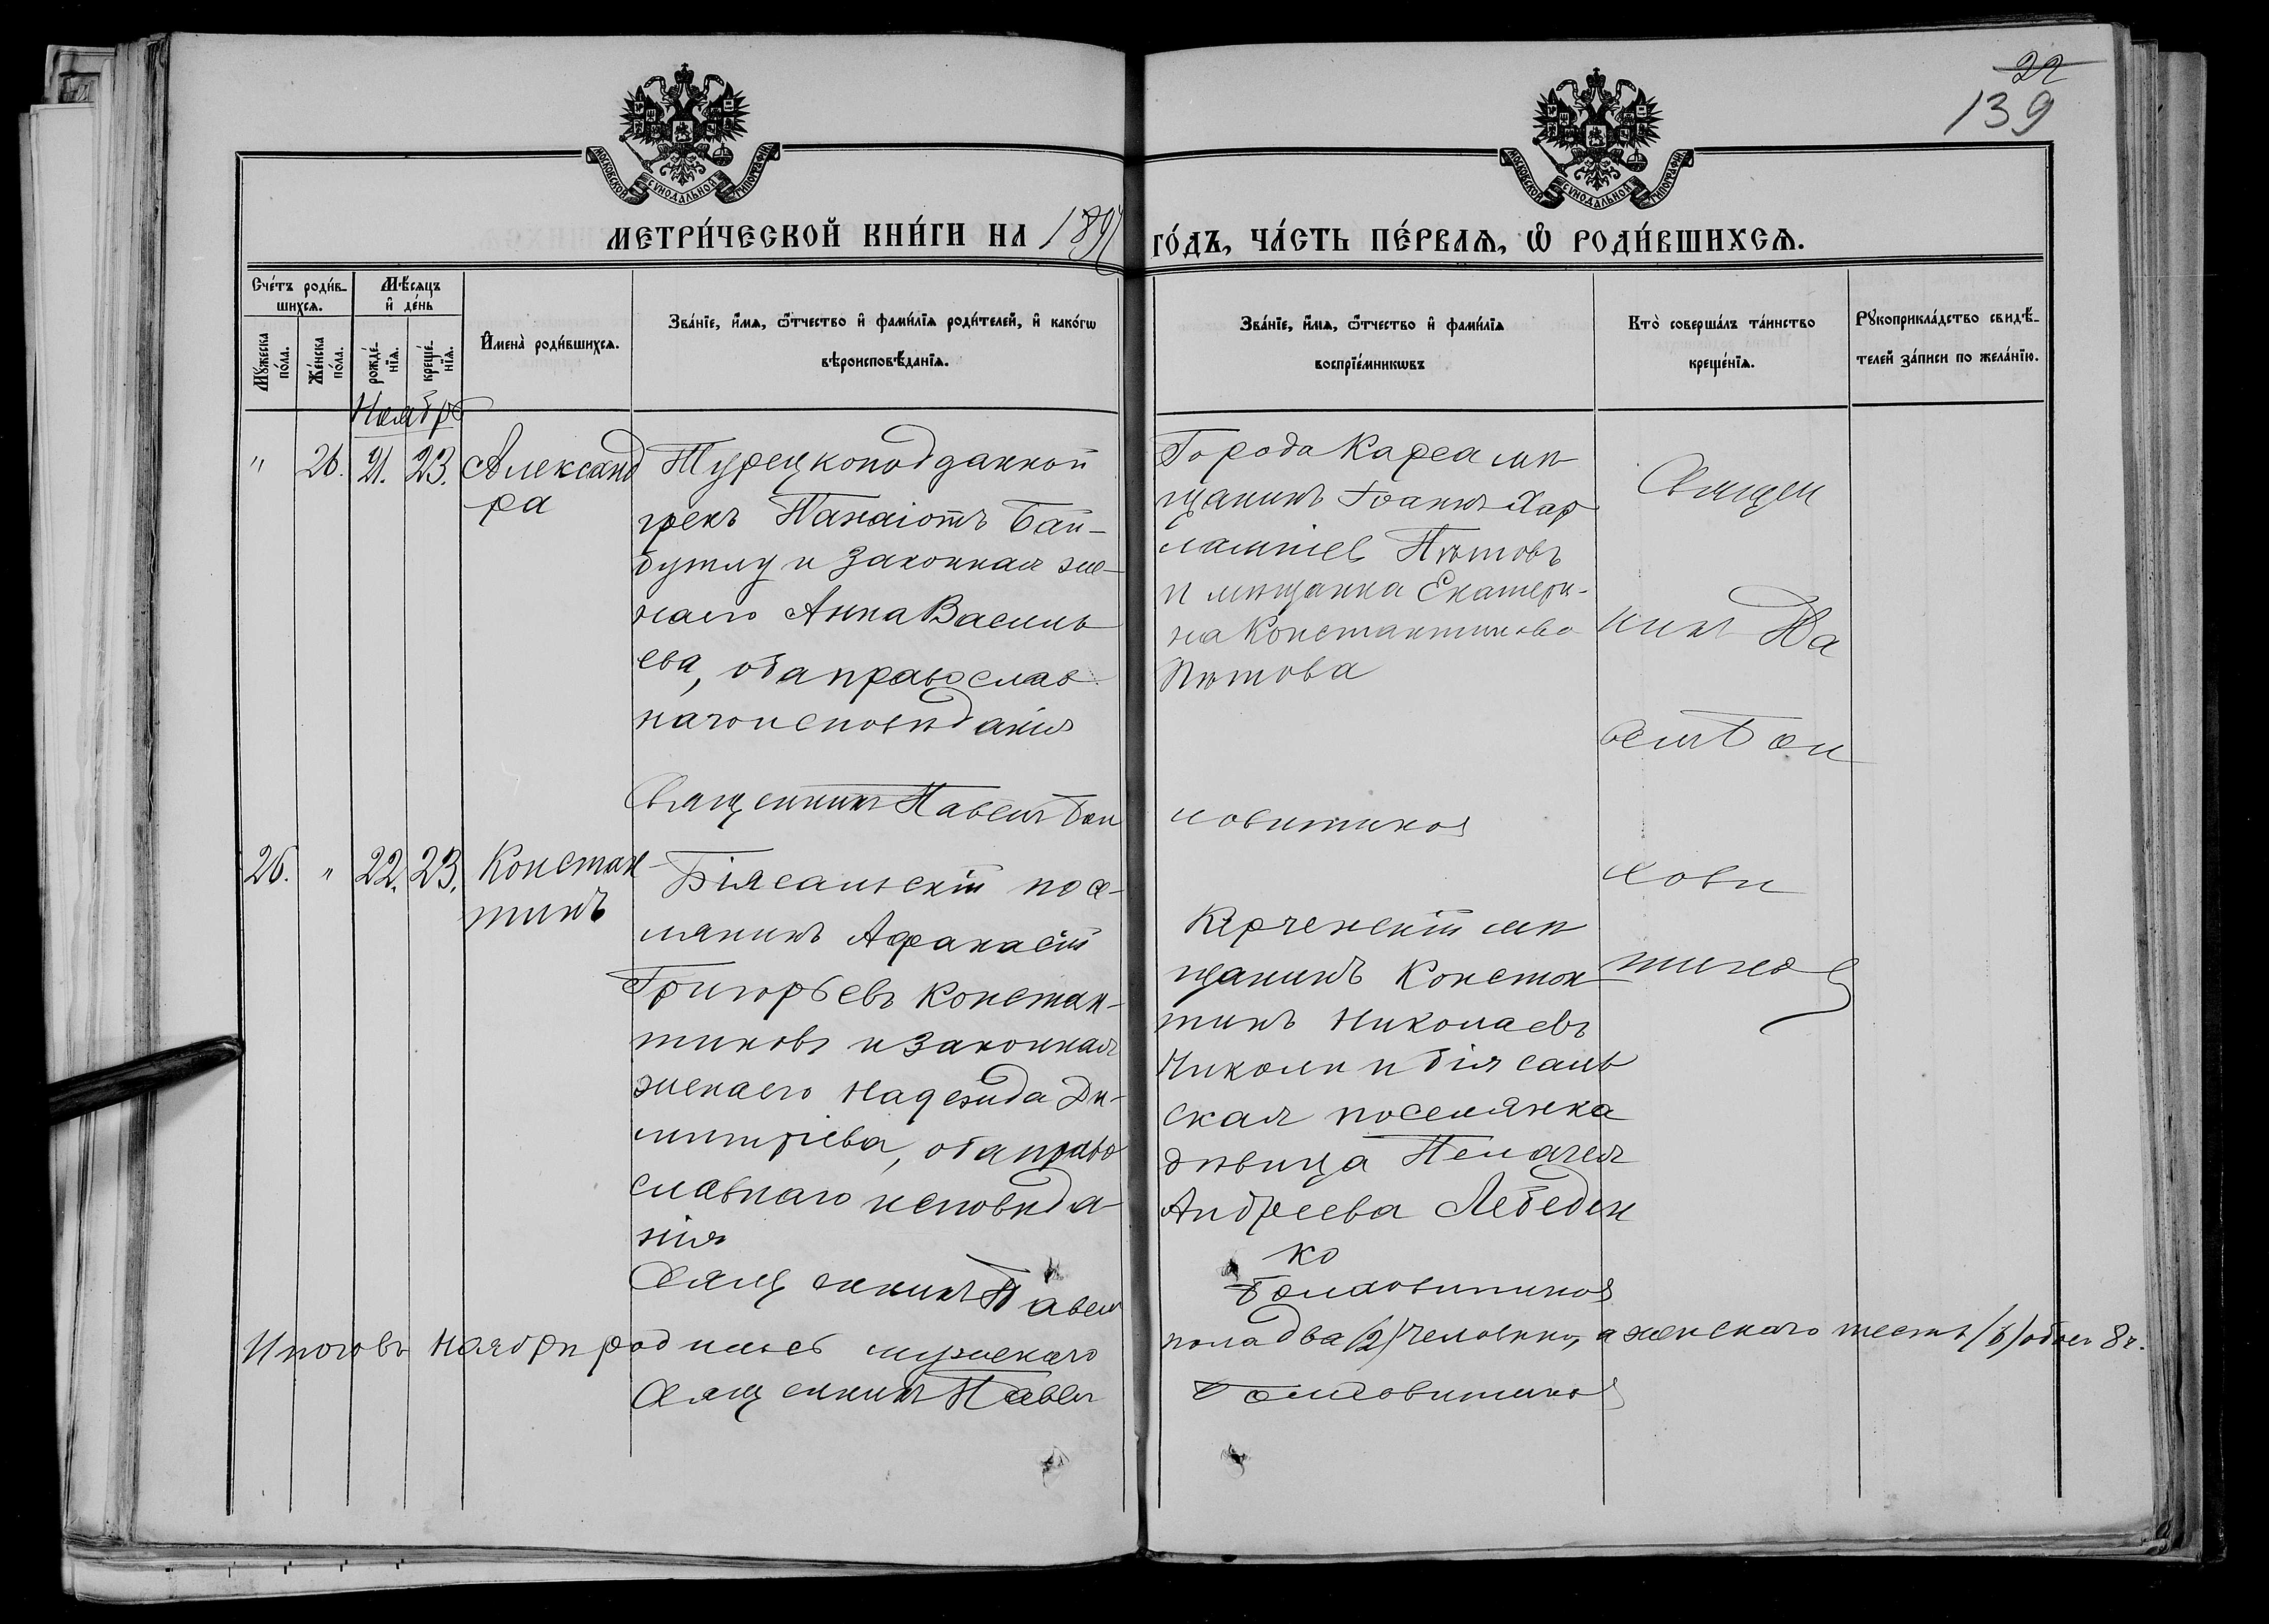 22
139
МОСКОВСКОЙ СѴНОДАЛЬНОЙ ТИПОГРАФІИ
МОСКОВСКОЙ СѴНОДАЛЬНОЙ ТИПОГРАФІИ
МЕТРИ́ЧЕСКОЙ КНИ́ГИ НА 1897 ГО́ДЪ, ЧА́СТЬ ПЕ́РВАѦ, Ѡ҆ РОДИ́ВШИХСѦ.
Сче́тъ роди́в-
шихсѧ.
Мѣ́сѧцъ
и҆ де́нь
Мꙋ́жеска
по́ла.
Же́нска
по́ла.
рожде́-
нїѧ.
креще́-
нїѧ.
И҆мена̀ роди́вшихсѧ.
Зва́нїе, и҆́мѧ, ѻ҆́тчество и҆ фами́лїѧ роди́телей, и҆ како́гѡ
вѣроисповѣ́данїѧ.
Зва́нїе, и҆́мѧ, ѻ҆́тчество и҆ фами́лїѧ
воспрїе́мникѡвъ
Кто̀ соверша́лъ та́инство
креще́нїѧ.
Рꙋкоприкла́дство свидѣ́-
телей за́писи по жела́нїю.
Ноябрь
" 26. 21. 23. Александ
ра
Турецкоподданной
грекъ Панаіотъ Бай-
бутлу и законная же-
на его Анна Василь
ева, оба православ
наго исповѣданія
Священникъ Павелъ Бог
Города Карса мѣ
щанинъ Іоаннъ Хар
лампіев Пѣтовъ
и мѣщанка Екатери-
на Константинова
Пѣтова
Священ
никъ Па
велъ
26. " 22. 23. Констан-
тинъ
Біясальскій посе-
лянинъ Афанасій
Григорьевъ Констан-
тиновъ и законная
жена его Надежда Ди-
митріева, оба право
славнаго исповѣда
нія
Священникъ Павелъ
Керченскій мѣ
щанинъ Констан
тинъ Николаевъ
Чиколи и біясаль
ская поселянка
дѣвица Пелагея
Андреева Лебеден
ко
Итого въ ноябрѣ родилось мужескаго пола два (2) человѣка, а женскаго шесть (6) обоего 8 ч.
Священникъ Павелъ